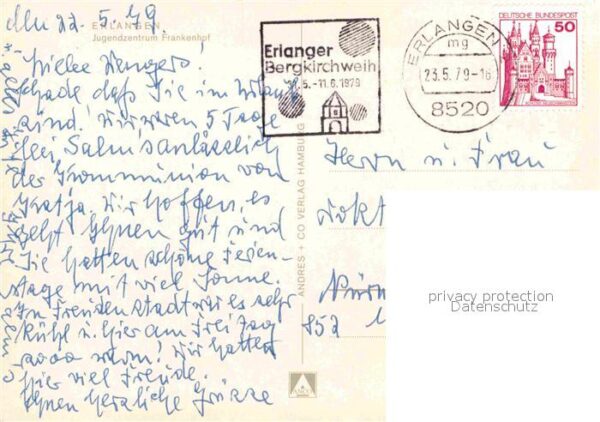 Den 22.5.79.
ERLANGEN
Jugendzentrum Frankenhof
Schade daß Sie im Urlaub
sind. Wir waren 5 Tage
bei Salms anlässlich
der Kommunion von
Katja. Wir hoffen, es
geht Ihnen gut und
Sie hatten schöne Ferien-
tage mit viel Sonne.
In Freudenstadt war es sehr
kühl u. hier am Freitag
sooo warm! Wir hatten
hier viel Freude.
Ihnen herzliche Grüsse
ANDRES + CO VERLAG HAMBURG
Erlanger
Bergkirchweih
5.-11.6.1979
ERLANGEN
mg
23.5.79-16
8520
DEUTSCHE BUNDESPOST
50
Herrn u. Frau
privacy protection
Datenschutz
852